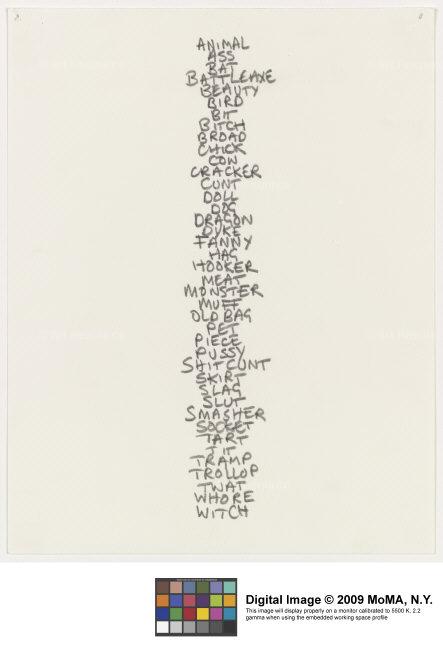 ANIMAL
ASS
BAT
BATTLEAXE
BEAUTY
BIRD
BIT
BITCH
BROAD
CHICK
COW
CRACKER
CUNT
DOLL
DOG
DRAGON
DYKE
FANNY
HAG
HOOKER
MEAT
MONSTER
MUFF
OLD BAG
PET
PIECE
PUSSY
SHIT CUNT
SKIRT
SLAG
SLUT
SMASHER
SOCKET
TART
TIT
TRAMP
TROLLOP
TWAT
WHORE
WITCH
Digital Image © 2009 MoMA, N.Y.
This image will display property on a monitor calibrated to 5500 K, 2.2
gamma when using the embedded working space profile